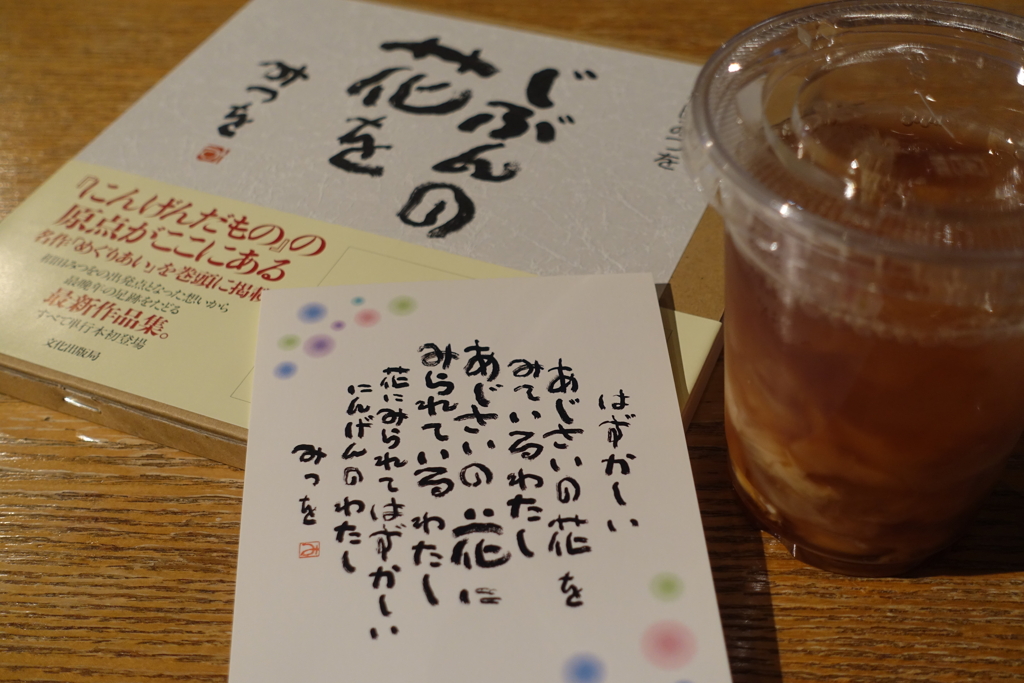 じぶんの
花を
みつを
『にんげんだもの』の
原点がここにある
名作「めぐりあい」を巻頭に掲載
相田みつをの出発点となった想いから
最晩年の足跡をたどる
最新作品集。
すべて単行本初登場
文化出版局
はずかしい
あじさいの花を
みているわたし
あじさいの花に
みられているわたし
花にみられてはずかしい
にんげんのわたし
みつを